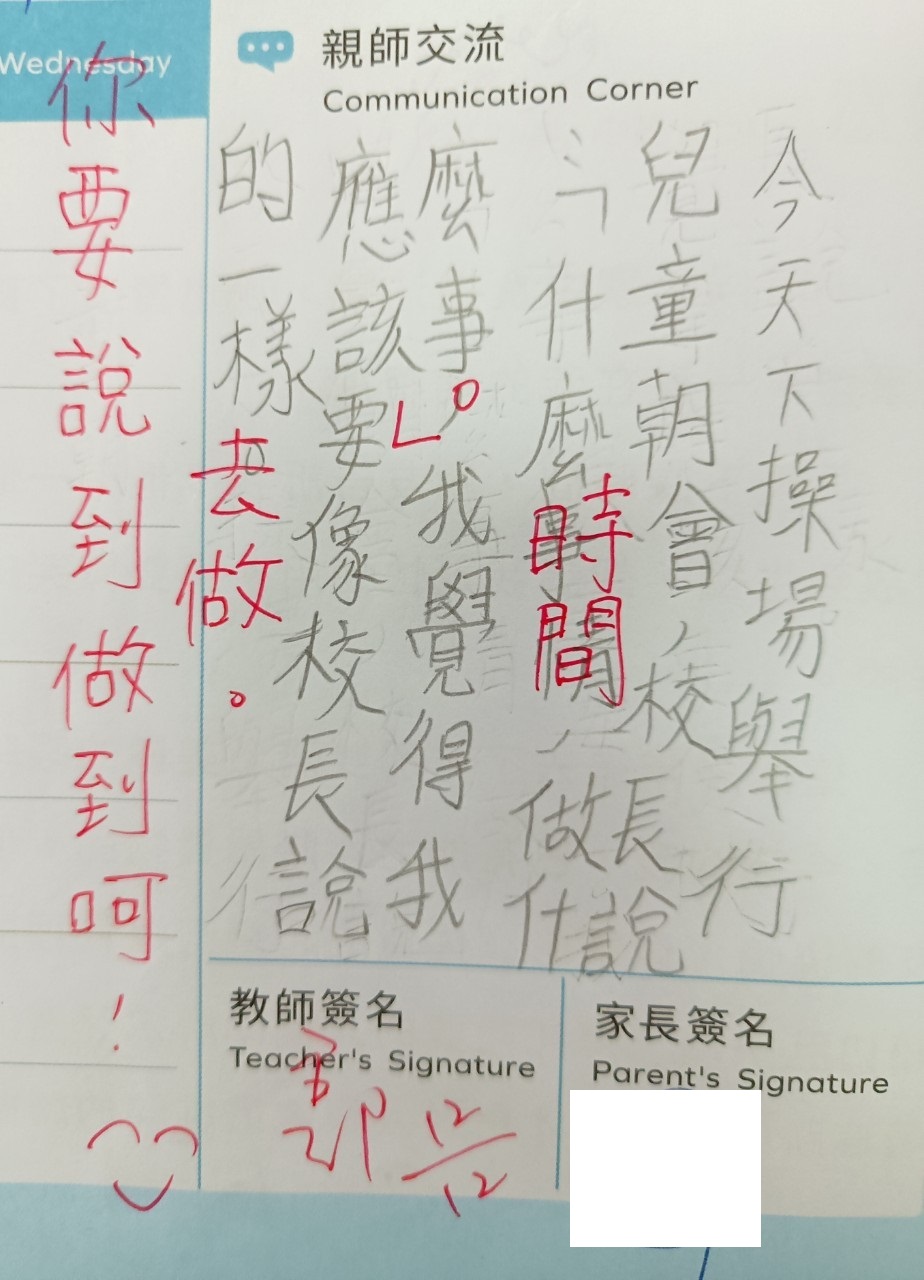 Wednesday
親師交流
Communication Corner
今天下操場舉行
兒童朝會,校長說
:「什麼時間,做什
麼事」。我覺得我
應該要像校長說
的一樣去做。
你要說到做到呵!
教師簽名
Teacher's Signature
12/12
家長簽名
Parent's Signature